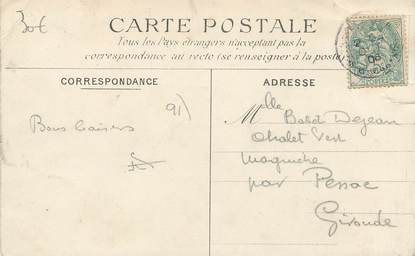 30€
CARTE POSTALE
Tous les Pays étrangers n'acceptent pas la
correspondance au recto (se renseigner à la poste)
CORRESPONDANCE
ADRESSE
91)
Bons baisers
Mlle
Dejean
Chalet Vert
par Pessac
Gironde